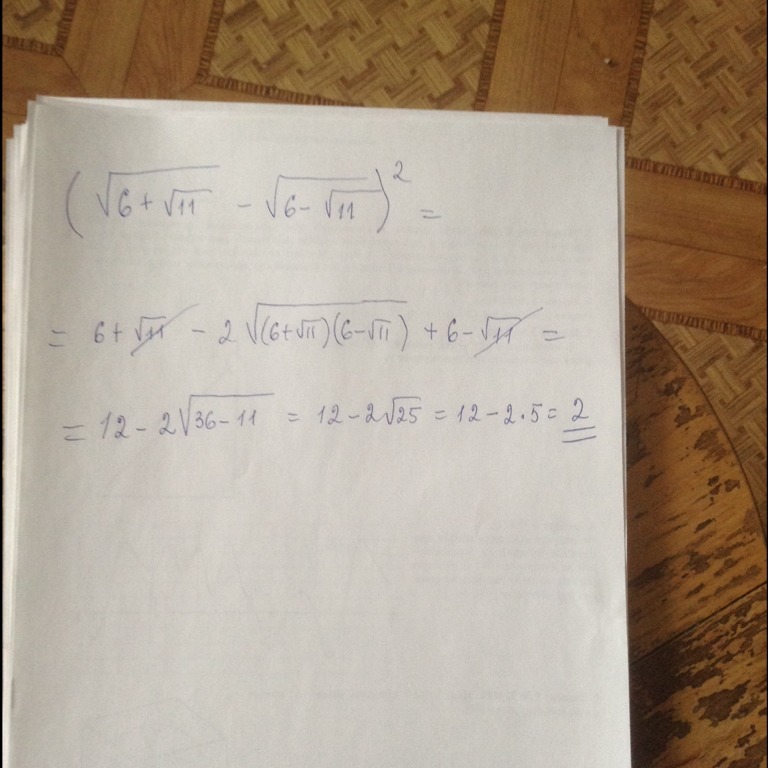 (√(6+√11) - √(6-√11))² =
= 6+√11 - 2√((6+√11)(6-√11)) + 6-√11 =
= 12-2√(36-11) = 12-2√25 = 12-2·5= 2